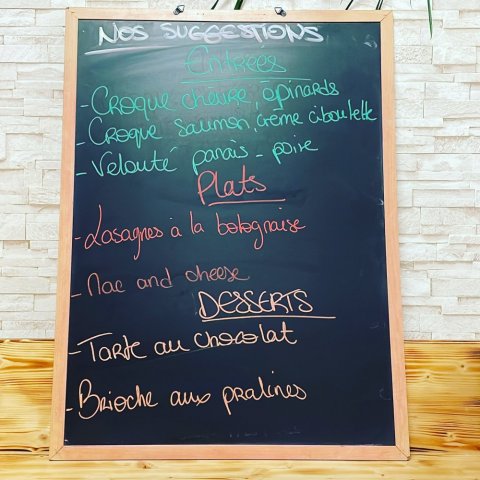 NOS SUGGESTIONS
Entrées
- Croque chèvre, épinards
- Croque saumon, crème ciboulette
- Velouté panais - poire
Plats
- Lasagnes à la bolognaise
- Mac and cheese
DESSERTS
- Tarte au chocolat
- Brioche aux pralines